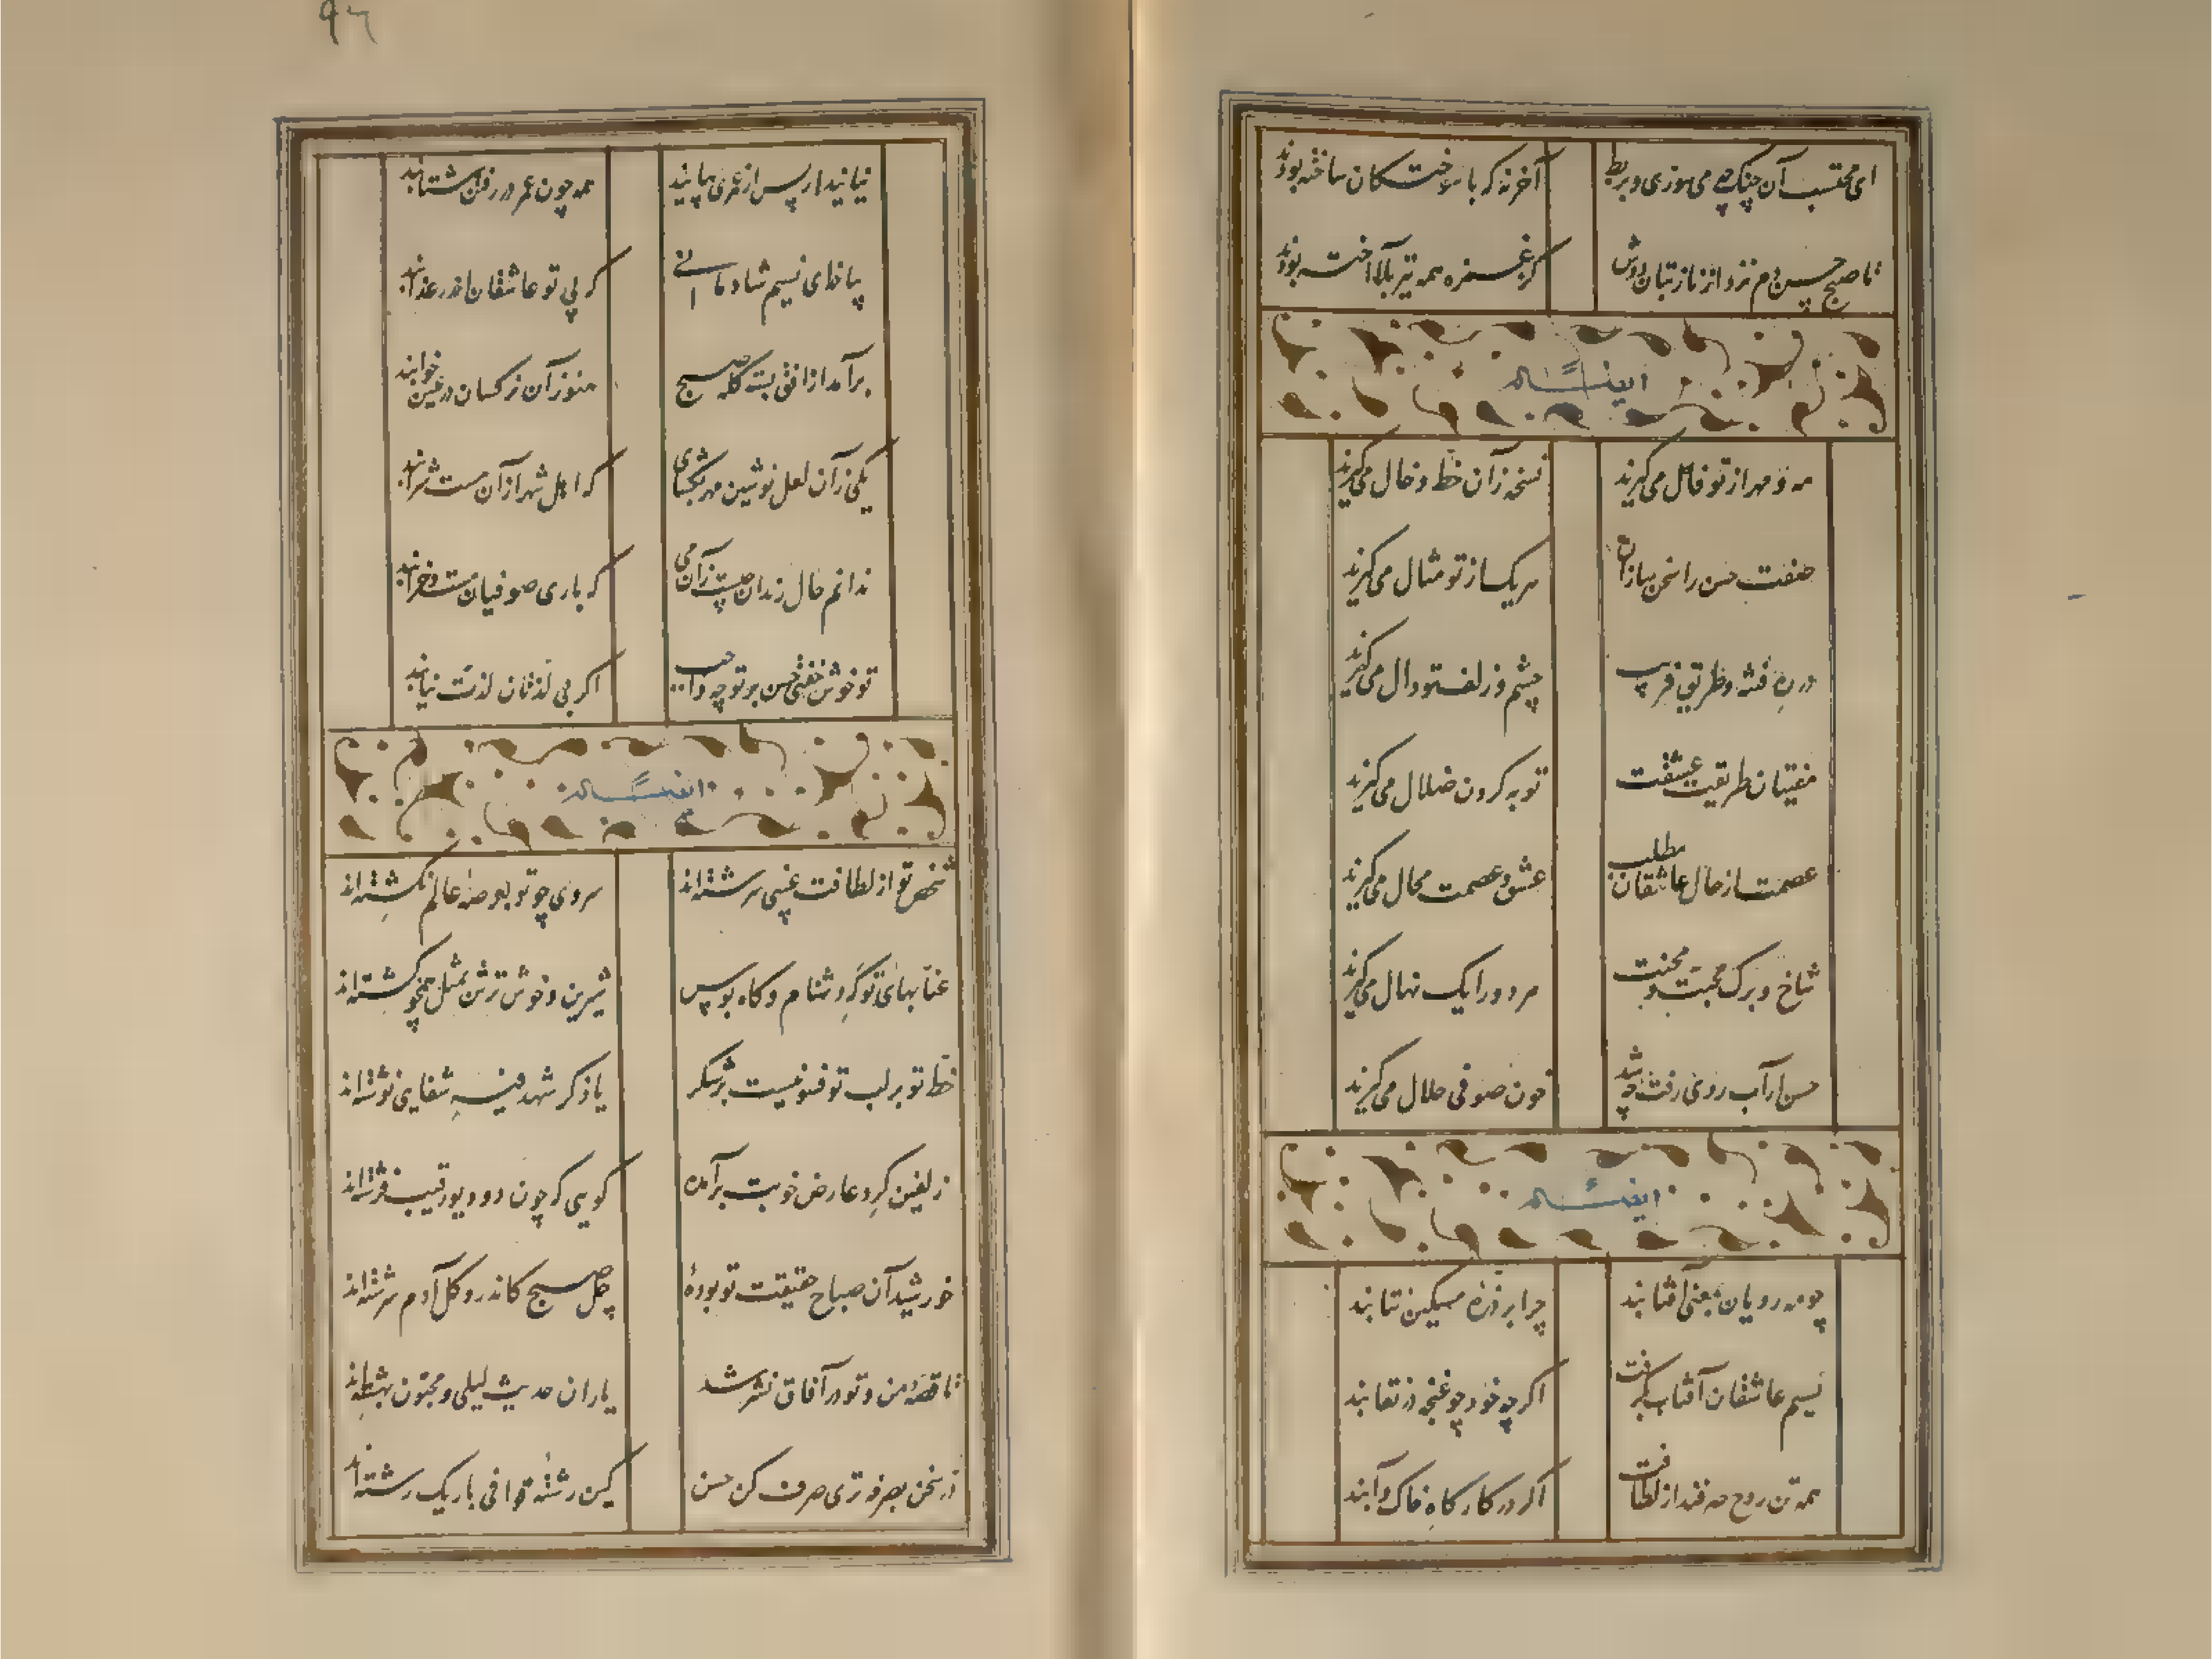 ای محتسب آن چنگ چه می سوزی و بربط
آخر نه که با سوختگان ساخته بودند
تا صبح حسن دم نزد از ناز بتان دوش
کز غمزه همه تیر بلا آخته بودند
ایضاً له
مه و مهر از تو فال می گیرند
نسخه زان خط و خال می گیرند
صفت حسن را سخن سازان
هر یک از تو مثال می گیرند
در ره فتنه و طریق فریب
چشم و زلفت و دال می گیرند
مفتیان طریقت عشقت
توبه کردن ضلال می گیرند
عصمت از حال عاشقان مطلب
عشق و عصمت محال می گیرند
شاخ و برگ محبت و محنت
هر دو را یک نهال می گیرند
حسن ار آب روی رفت چه شد
خون صوفی حلال می گیرند
ایضاً له
چو مه رویان بمعنی آفتابند
چرا بر ذره مسکین نتابند
نسیم عاشقان آفتاب گرفت
اگر چه خود چو غنچه در نقابند
همه تن روح صرفند از لطافت
اگر در کارگاه خاک و آبند
نیایند ار پس از عمری بیایند
همه چون عمر در رفتن شتابند
بیا خدای نسیم شادمانی
کز پی تو عاشقان اندر عذابند
برآمد از افق بست کله صبح
هنوز آن نرکسان در عین خوابند
یکی زان لعل نوشین مهر بگشای
که اهل شهر ازان مست شرابند
ندانم حال رندان چیست زان می
که باری صوفیان مست و خرابند
تو خوش خفتی حسن بر تو چه واجب
اگر بی لذتان لذت نیابند
ایضاً له
شخص تو از لطافت غیبی سرشته اند
سروی چو تو بعرصه عالم نکشته اند
عنابهای تو گه دشنام و گاه بوس
شیرین و خوش ترش بمثل همچو کشته اند
خط تو بر لب تو فسونیست بر شکر
یا ذکر شهد فیه شفایی نوشته اند
زلفین گرد عارض خوبت برآمده
گویی که چون دو دیو رقیب فرشته اند
خورشید آن صباح حقیقت تو بوده
چل صبح کاندرو گل آدم سرشته اند
تا قصه من و تو در آفاق نشر شد
یاران حدیث لیلی و مجنون بهشته اند
در سخن بصرف تری صرف کن حسن
کین رشته قوافی باریک رشته اند